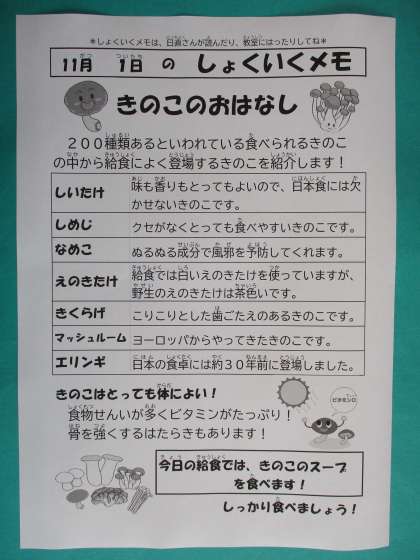 ＊しょくいくメモは、日直さんが読んだり、教室にはったりしてね＊
11月 1日 の しょくいくメモ
きのこのおはなし
２００種類あるといわれている食べられるきのこ
の中から給食によく登場するきのこを紹介します！
しいたけ 味も香りもとってもよいので、日本食には欠
かせないきのこです。
しめじ クセがなくとっても食べやすいきのこです。
なめこ ぬるぬる成分で風邪を予防してくれます。
えのきたけ 給食では白いえのきたけを使っていますが、
野生のえのきたけは茶色いです。
きくらげ こりこりとした歯ごたえのあるきのこです。
マッシュルーム ヨーロッパからやってきたきのこです。
エリンギ 日本の食卓には約３０年前に登場しました。
きのこはとっても体によい！
食物せんいが多くビタミンがたっぷり！
骨を強くするはたらきもあります！
ビタミンD
今日の給食では、きのこのスープ
を食べます！
しっかり食べましょう！